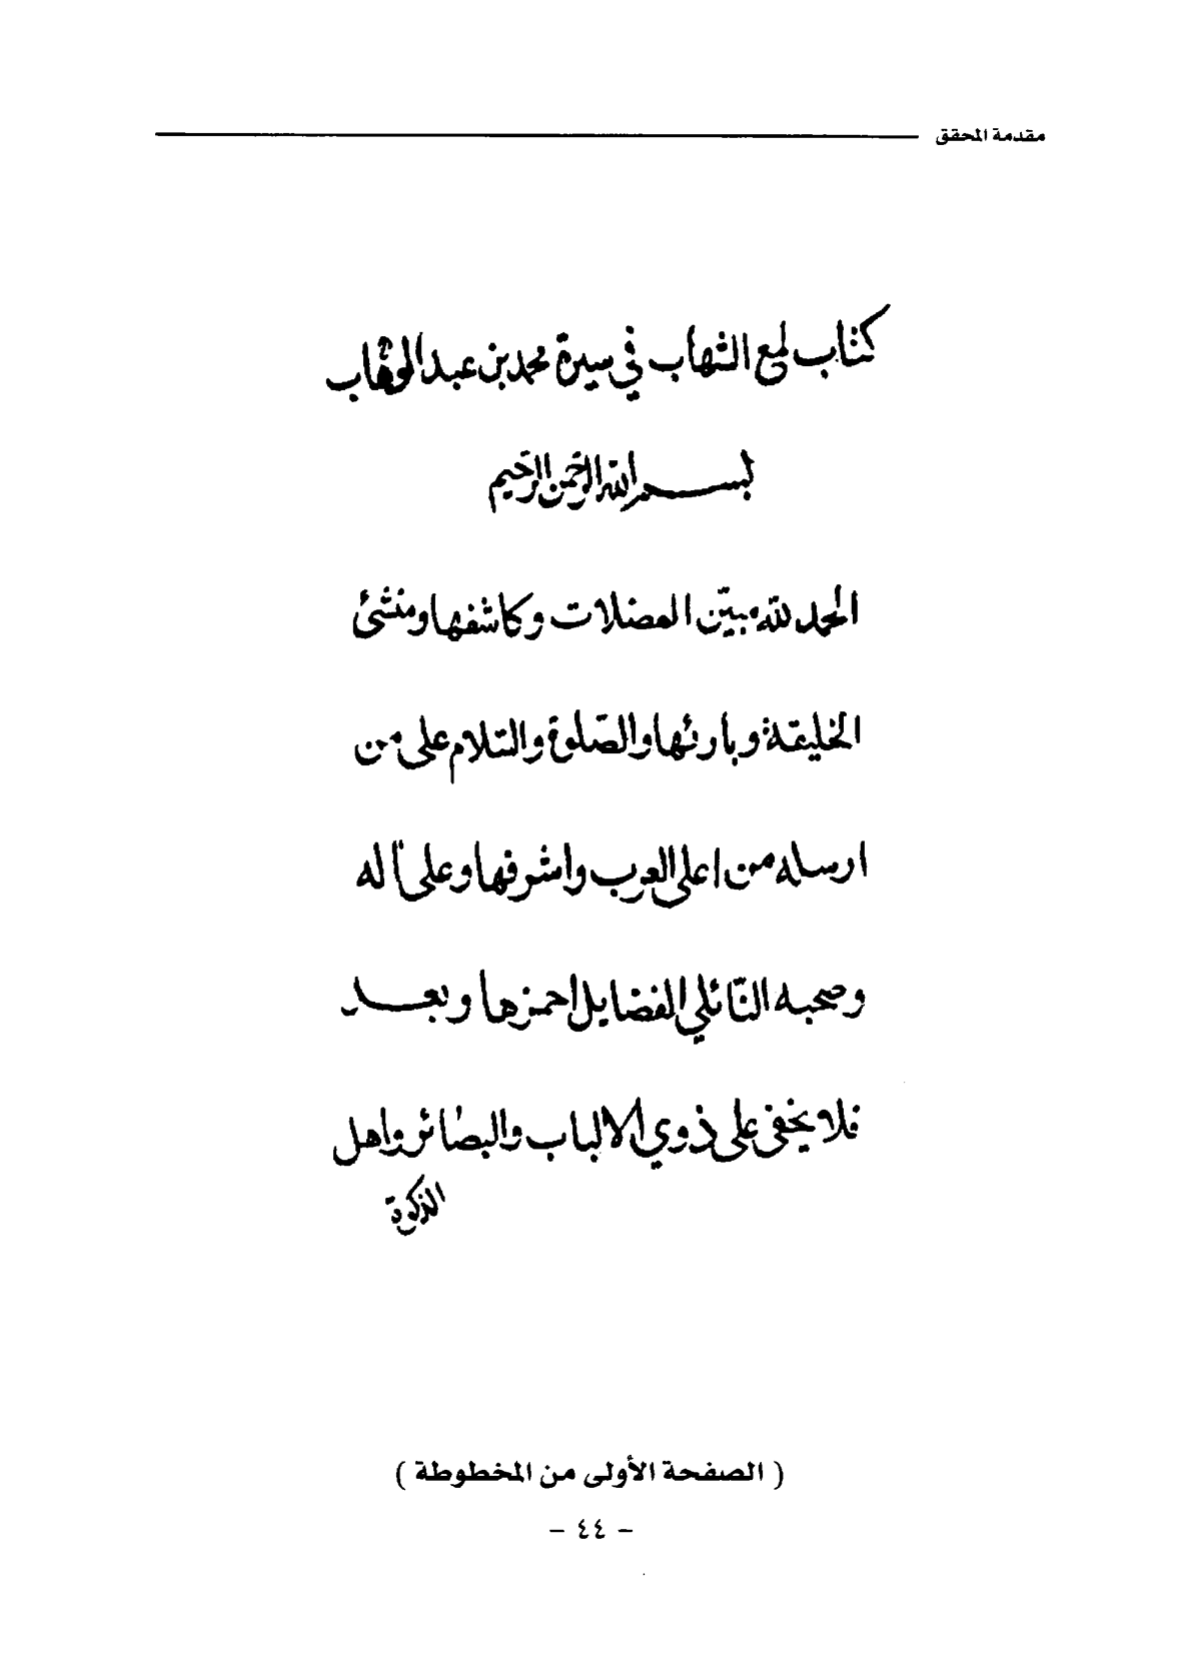 مقدمة المحقق
كتاب لمع الشهاب في سيرة محمد بن عبد الوهاب
بسم الله الرحمن الرحيم
الحمد لله مبيّن المعضلات وكاشفها ومنشئ
الخليقة وبارئها والصّلوة والسّلام على من
ارسله من اعلى العرب واشرفها وعلى آله
وصحبه النّائلي الفضايل احمزها وبعد
فلا يخفى على ذوي الالباب والبصائر واهل
الذكرة
( الصفحة الأولى من المخطوطة )
– ٤٤ –